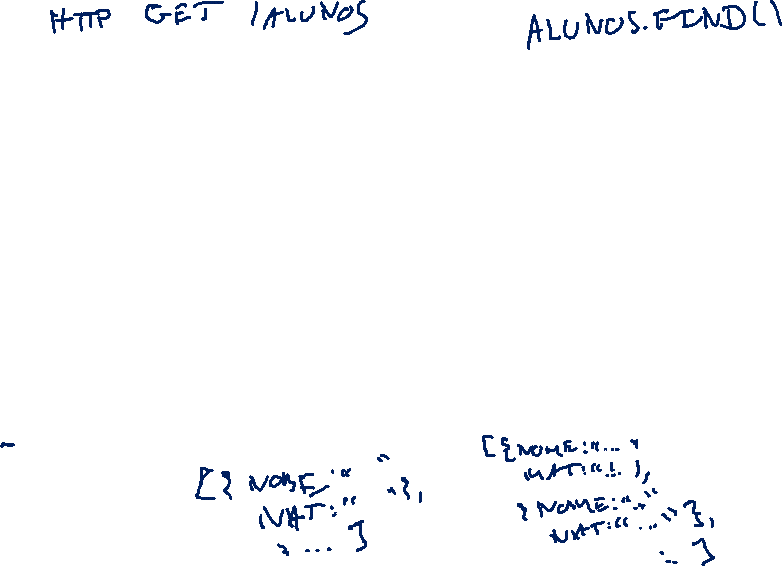 HTTP GET /ALUNOS
ALUNOS.FIND()
[{NOME:"..."
MAT:"..."},
{NOME:"..."
MAT:"..."},
... ]
[{ NOME:" "
MAT:" "},
... ]